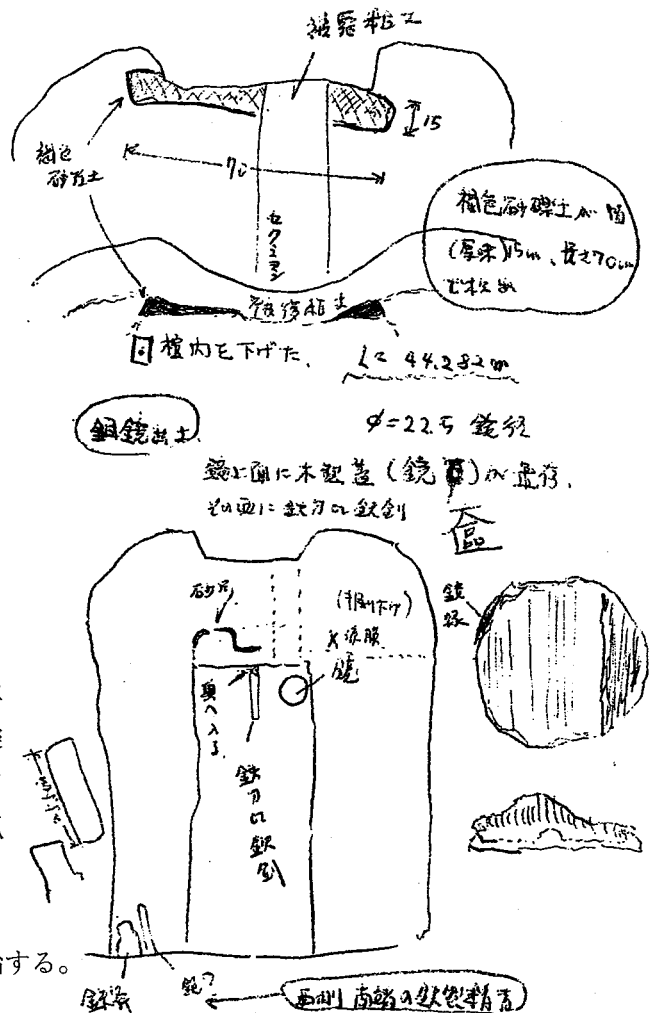 被覆粘土
15
褐色
砂礫土
70
セクション
褐色砂礫土が
(厚味)15cm、長さ70cm
で検出
被覆粘土
棺内を下げた。
L= 44.282m
銅鏡出土
φ=22.5 鏡径
鏡上面に木製蓋(鏡)が遺存。
その西に鉄刀or鉄剣
砂岩
(掘り下げ)
×漆膜
鏡
鏡縁
奥へ入る。
鉄刀or鉄剣
する。
鉄斧
西側